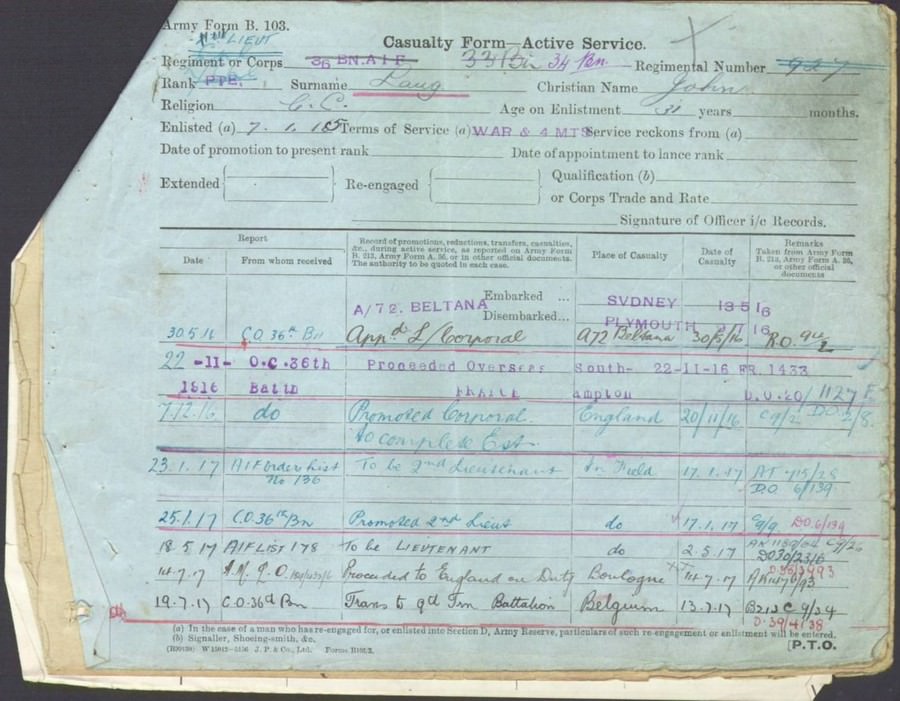 Army Form B. 103.
LIEUT
Casualty Form—Active Service.
Regiment or Corps 36 BN.A.I.F. 33 Bn 34 Bn. Regimental Number 927
Rank PTE. Surname Lang Christian Name John
Religion C.C. Age on Enlistment 31 years months.
Enlisted (a) 7.1.16 Terms of Service (a) WAR & 4 MTS Service reckons from (a)
Date of promotion to present rank Date of appointment to lance rank
Extended Re-engaged Qualification (b)
or Corps Trade and Rate
Signature of Officer i/c Records.
Report
Date From whom received
Record of promotions, reductions, transfers, casualties, &c., during active service, as reported on Army Form B. 213, Army Form A. 36, or in other official documents. The authority to be quoted in each case.
Place of Casualty
Date of Casualty
Remarks
Taken from Army Form B. 213, Army Form A. 36, or other official documents
A/72. BELTANA Embarked ... SYDNEY 13 5 16
Disembarked... PLYMOUTH 7 16
30.5.16 C.O. 36th Bn Appd L/Corporal A72 Beltana 30/5/16 R.O.
22 -11- O.C. 36th Proceeded Overseas South- 22-11-16 FR. 1433
1916 Battn FRANCE ampton D.O.20/ 1127
7.12.16 do Promoted Corporal England 20/11/16
to complete Est.
23.1.17 AIF Order List To be 2nd Lieutenant In Field 17.1.17
No 136 D.O. 6/139
25.1.17 C.O. 36th Bn Promoted 2nd Lieut do 17.1.17 C9/9 D.O.6/139
18.5.17 AIF LIST 178 To be LIEUTENANT do 2.5.17
D.O 30/2316
14.7.17 Proceeded to England on Duty Boulogne 14.7.17
19.7.17 C.O. 36th Bn Trans to 9th Trn Battalion Belguim 13.7.17 B213 C 9/24
D.39/4138
(a) In the case of a man who has re-engaged for, or enlisted into Section D, Army Reserve, particulars of such re-engagement or enlistment will be entered.
(b) Signaller, Shoeing-smith, &c.
J. P. & Co., Ltd. [P.T.O.